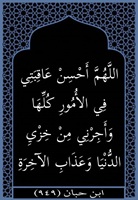 اللَّهُمَّ أَحْسِنْ عَاقِبَتِي
فِي الأُمُورِ كُلِّهَا
وَأَجِرْنِي مِنْ خِزْيِ
الدُّنْيَا وَعَذَابِ الآخِرَةِ
ابن حبان (٩٤٩)